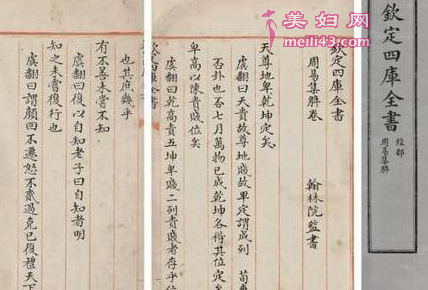 美妇网
meili43.com
欽定四庫全書
經部
周易集觧
欽定四庫全書
周易集觧卷
翰林院監書
天尊地卑乾坤定矣
虞翻曰天貴故尊地賤故卑定謂成列 荀爽
否卦也否七月萬物已成乾坤各得其位定矣
卑高以陳貴賤位矣
虞翻曰乾高貴五坤卑賤二列貴賤者存乎位
四庫全書
也其庶幾乎
有不善未嘗不知
虞翻曰復以自知老子曰自知者明
知之未嘗復行也
虞翻曰謂顏回不遷怒不貳過克己復禮天下